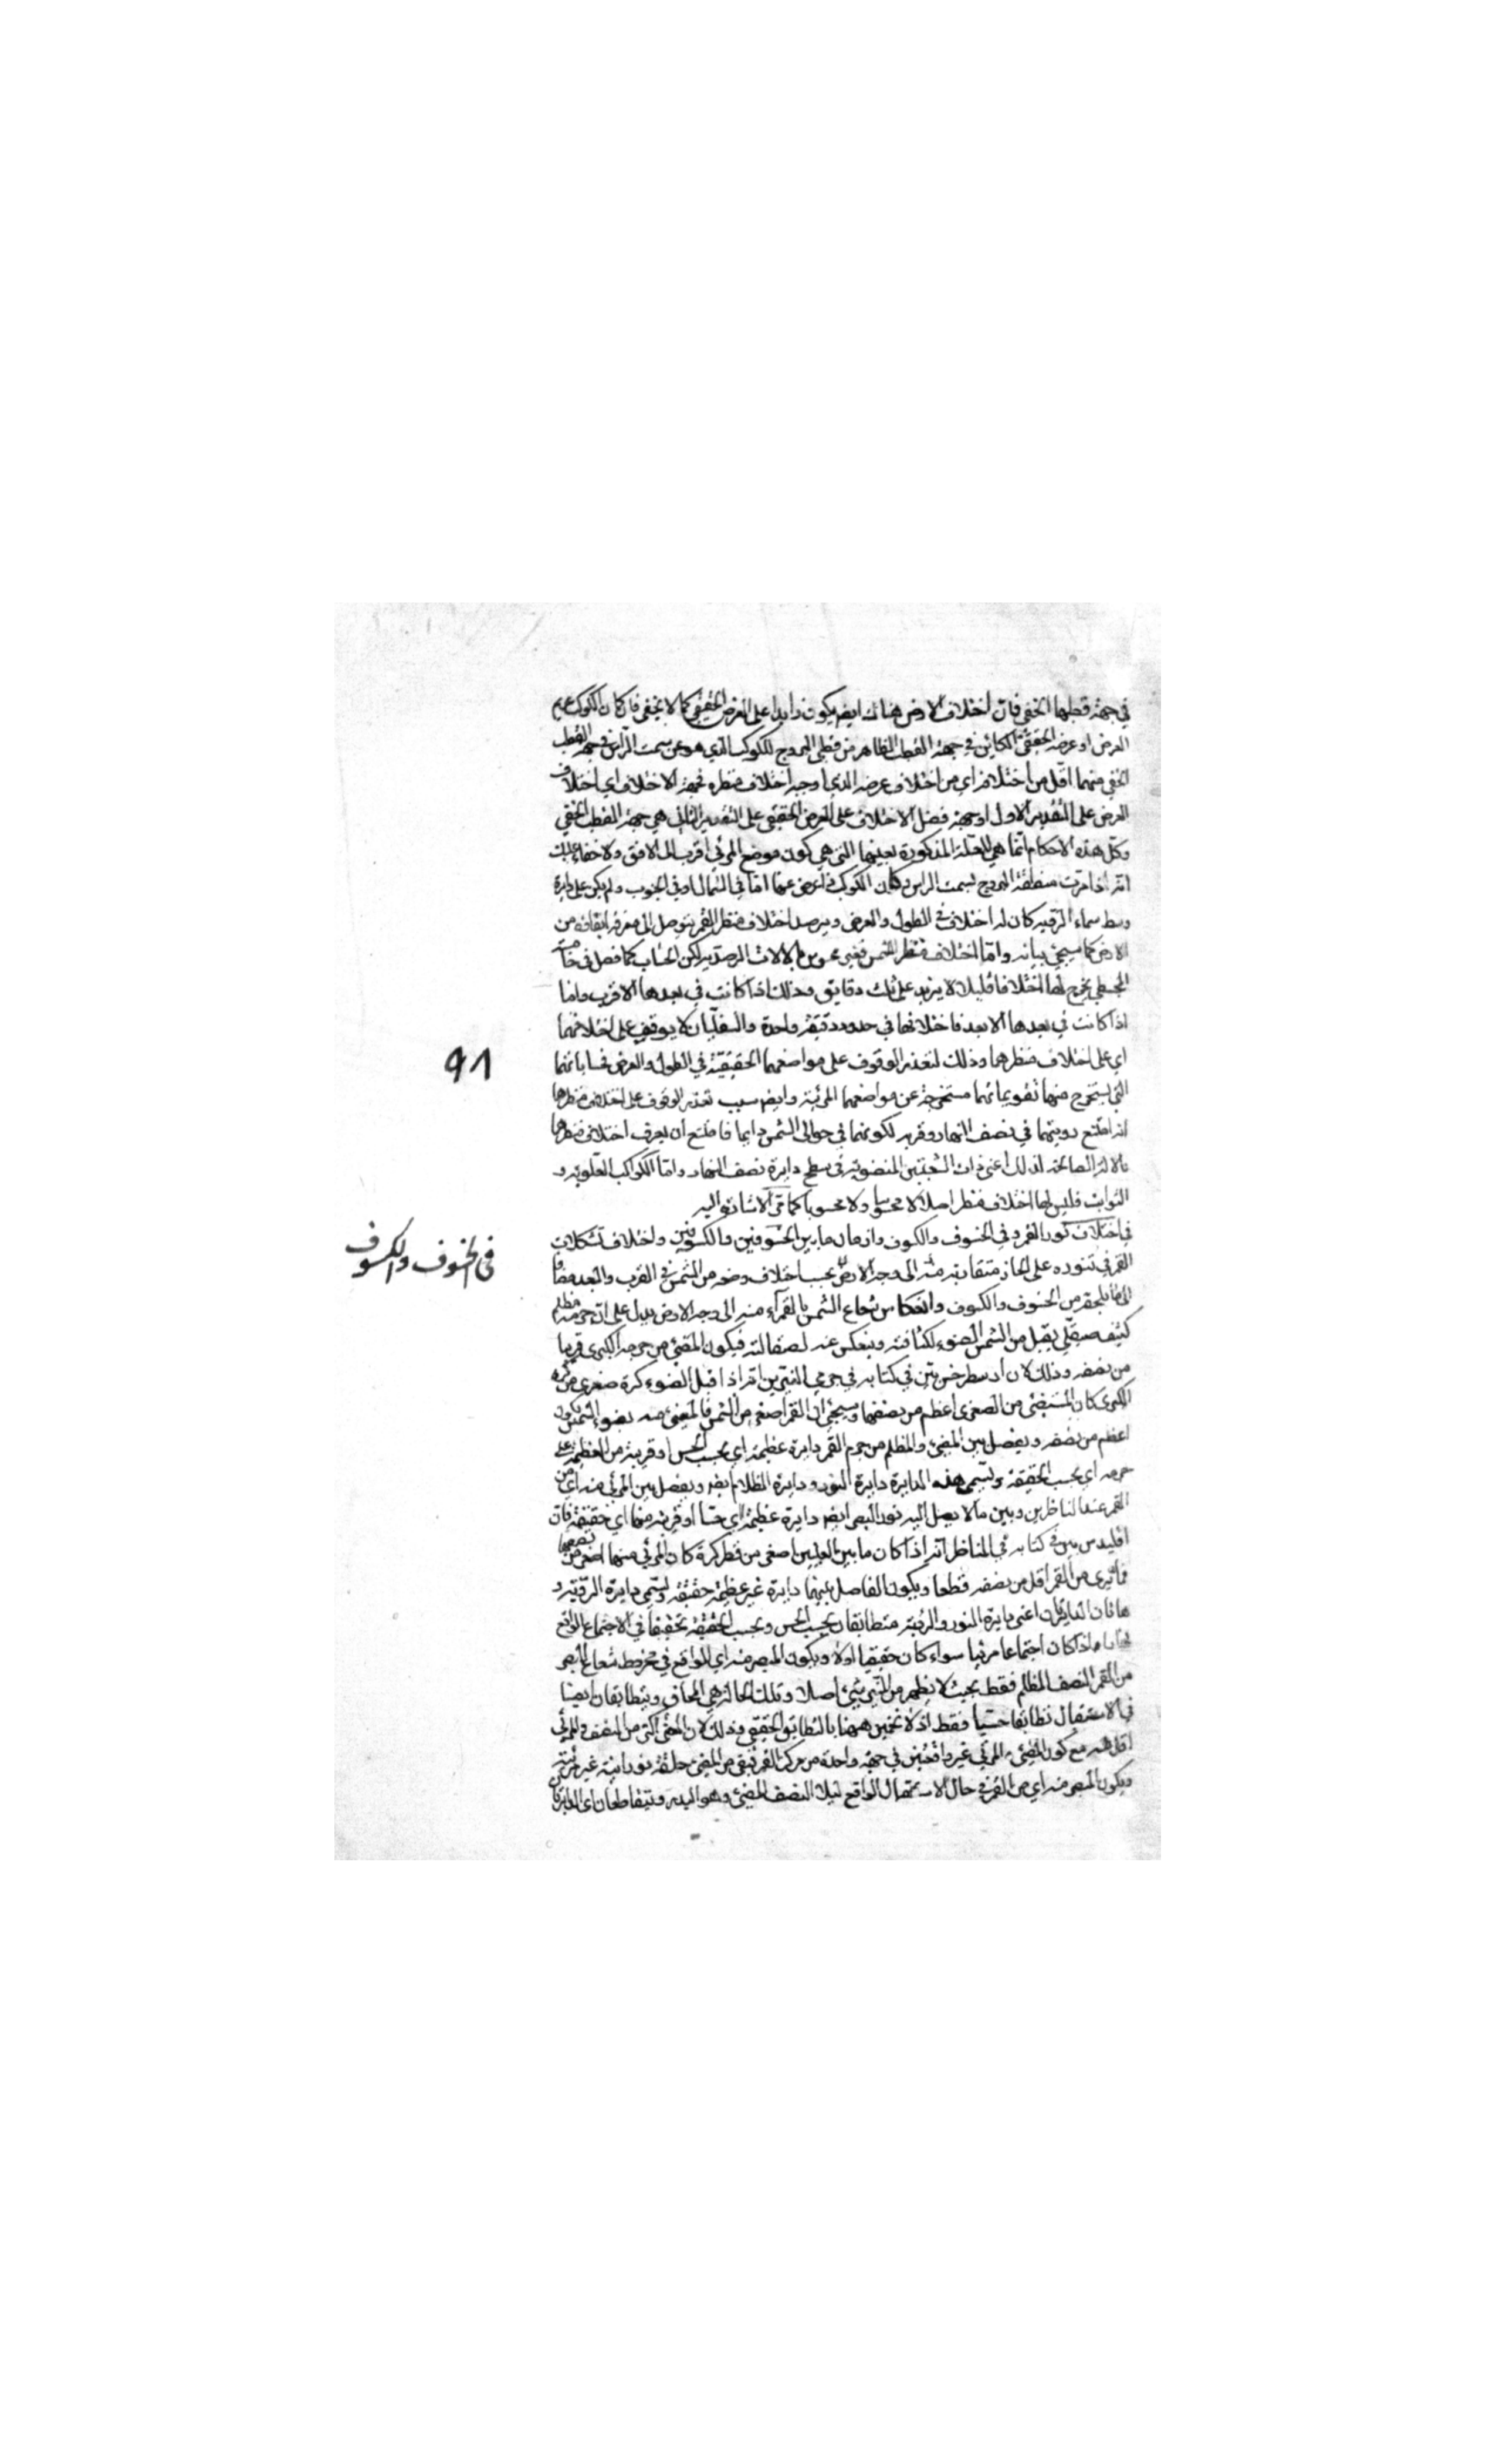 في جهة قطبها الخفي فان اختلاف الارض هناك ايضا يكون زايدا على العرض الحقيقي كما لا يخفى فان كان الكوكب عديم
العرض او عرضه الحقيقي الكائن في جهة القطب الظاهر من قطبي البروج للكوكب الذي هو عن سمت الرأس في جهة القطب
الخفي منهما اقل من اختلافه اي من اختلاف عرضه الذي اوجبه اختلاف منظره فجهة الاختلاف اي اختلاف
العرض على التقدير الاول او جهة فضل الاختلاف على العرض الحقيقي على التقدير الثاني هي جهة القطب الخفي
وكل هذه الاحكام انما هي للعلة المذكورة بعينها التي هي كون موضع المرئي اقرب الى الافق ولا خفاء عليك
انه اذا مرت منطقة البروج بسمت الراس وكان الكوكب ذا عرض عنها اما في الشمال او في الجنوب ولم يكن على دايرة
وسط سماء الرؤية كان له اختلاف في الطول والعرض وبرصد اختلاف منظر القمر يتوصل الى معرفة ابعاده من
الارض كما سيجئ بيانه واما اختلاف منظر الشمس فغير محسوس بالالات الرصدية لكن الحساب كما فصل في خامسة
المجسطي يخرج لها اختلافا قليلا لا يزيد على ثلث دقايق وذلك اذا كانت في بعدها الاقرب واما
اذا كانت في بعدها الابعد فاختلافها في حدود دقيقة واحدة والسفليان لا يوقف على اختلافهما
اي على اختلاف منظرهما وذلك لتعذر الوقوف على مواضعهما الحقيقية في الطول والعرض فحساباتهما
التي يستخرج منها تقويماتهما مستخرجة عن مواضعهما المرئية وايضا سبب تعذر الوقوف على اختلاف منظرهما
انه امتنع رويتهما في نصف النهار وقربه لكونهما في حوالى الشمس دايما فامتنع أن يعرف اختلاف منظرهما
بالالة الصالحة لذلك اعني ذات الشعبتين المنصوبة في سطح دايرة نصف النهار واما الكواكب العلوية و
الثوابت فليس لها اختلاف منظر اصلا لا محسوسا ولا محسوبا كما مر الاشارة اليه
في اختلاف نور القمر وفي الخسوف والكسوف وازمان ما بين الخسوفين والكسوفين واختلاف تشكلات
القمر في تنوره على انحاء متفاوتة منه الى وجه الارض بحسب اختلاف وضعه من الشمس في القرب والبعد مضافا
الى ما يلحقه من الخسوف والكسوف وانعكاس شعاع الشمس بالقمر منه الى وجه الارض يدل على ان جرمه مظلم
كثيف صيقلي يقبل من الشمس الضوء لكثافته وينعكس عنه لصقالته فيكون المضئ من جرمه الكرى قريبا
من نصفه وذلك لان ارسطرخس بين في كتابه في جرمي النيرين انه اذا قبل الضوء كرة صغرى من كرة
الكبرى كان المستضئ من الصغرى اعظم من نصفها وسيجئ ان القمر اصغر من الشمس فالمضئ منه بضوء الشمس يكون
اعظم من نصفه ويفصل بين المضئ والمظلم من جرم القمر دايرة عظيمة اي بحسب الحس او قريبة من العظيمة على
جرمه اي بحسب الحقيقة وتسمى هذه الدايرة دايرة النور ودايرة الظلام ايضا ويفصل بين المرئي منه اي من
القمر عند الناظرين وبين ما لا يصل اليه نور البصر ايضا دايرة عظيمة اي حسا او قريبة منها اي حقيقة فان
اقليدس بين في كتابه في المناظر انه اذا كان ما بين العينين اصغر من قطر كرة كان المرئي منها اصغر من نصفها
فما يرى من القمر اقل من نصفه قطعا ويكون الفاصل بينهما دايرة غير عظيمة حقيقة وتسمى دايرة الرؤية و
هاتان الدايرتان اعني دايرة النور والرؤية متطابقان بحسب الحس وبحسب الحقيقة تحقيقا في الاجتماع الواقع
اذا كان اجتماعا مرئيا سواء كان حقيقيا اولا ويكون المبصر منه اي الواقع في مخروط شعاع البصر
من القمر النصف المظلم فقط بحيث لا يظهر من المنير شئ اصلا وتلك الحالة هي المحاق ويتطابقان ايضا
في الاستقبال تطابقا حسيا فقط اذ لا يمكن ههنا بالتطابق الحقيقي وذلك لان المضئ اكثر من النصف والمرئي
اقل منه مع كون المضئ والمرئي غير واقعين في جهة واحدة من مركز القمر فيبقى من المضئ حلقة نورانية غير مرئية
ويكون المبصر منه اي من القمر في حال الاستقبال الواقع ليلا النصف المضئ وهو البدر ويتقاطعان اي الدايرتان
٩٨
في الخسوف والكسوف